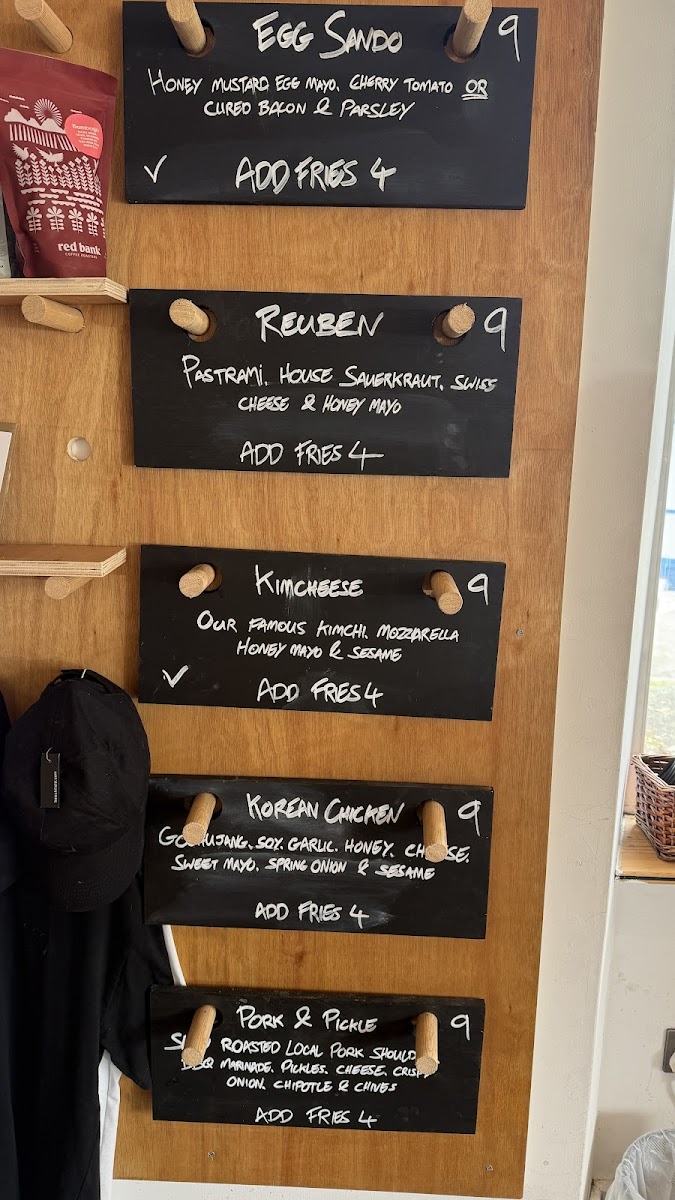 EGG SANDO 9
HONEY MUSTARD, EGG MAYO, CHERRY TOMATO OR
CURED BACON & PARSLEY
✓ ADD FRIES 4
red bank
COFFEE ROASTERS
REUBEN 9
PASTRAMI, HOUSE SAUERKRAUT, SWISS
CHEESE & HONEY MAYO
ADD FRIES 4
KIMCHEESE 9
OUR FAMOUS KIMCHI, MOZZARELLA
HONEY MAYO & SESAME
✓ ADD FRIES 4
KOREAN CHICKEN 9
SOY, GARLIC, HONEY,
SWEET MAYO, SPRING ONION & SESAME
ADD FRIES 4
PORK & PICKLE 9
ROASTED LOCAL PORK
MARINADE, PICKLES, CHEESE,
ONION, CHIPOTLE & CHIVES
ADD FRIES 4